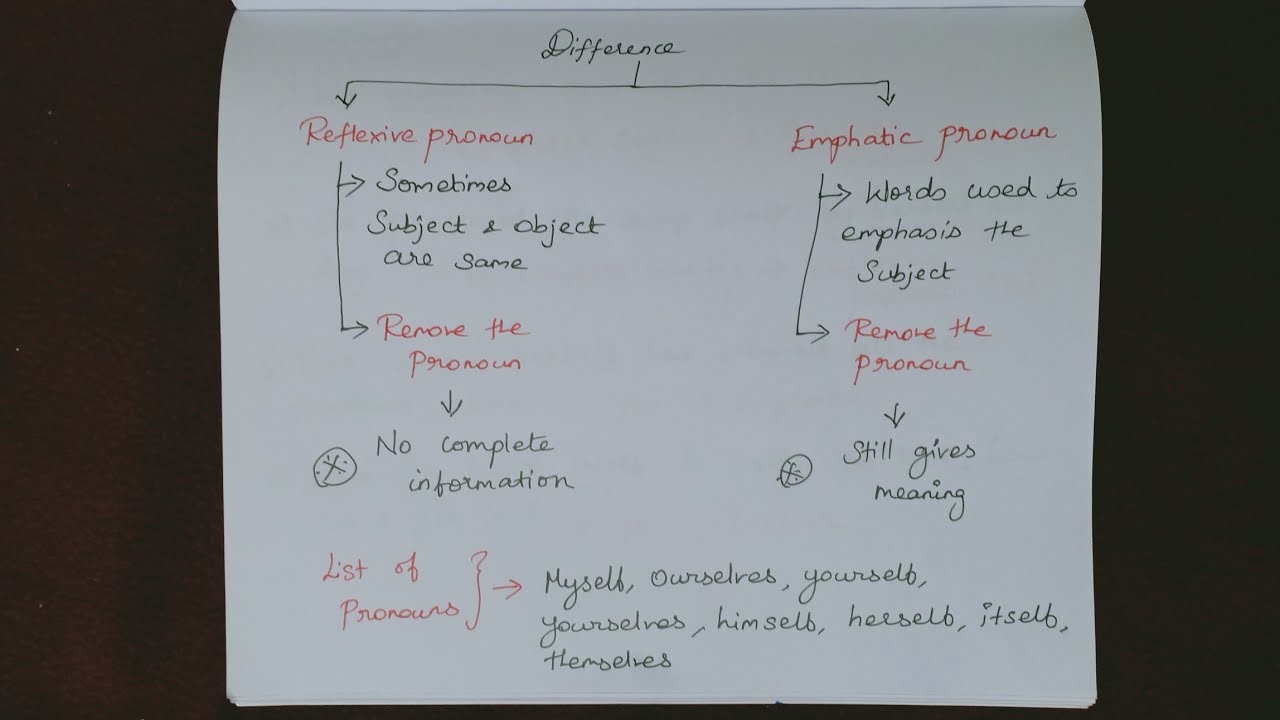 Difference
Reflexive pronoun
Sometimes
Subject & object
are same
Remove the
Pronoun
No complete
information
Emphatic pronoun
Words used to
emphasis the
Subject
Remove the
pronoun
Still gives
meaning
List of
Pronouns
Myself, Ourselves, yourself,
yourselves, himself, herself, itself,
themselves